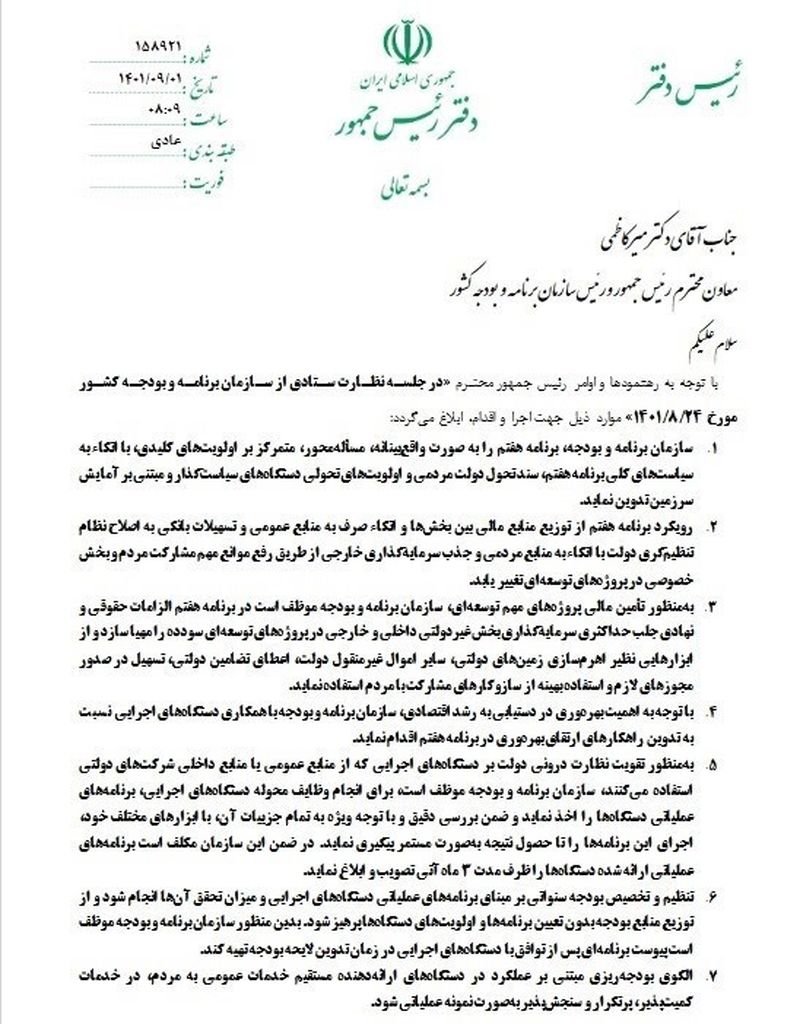 شماره : ۱۵۸۹۲۱
تاریخ : ۱۴۰۱/۰۹/۰۱
ساعت : ۰۸:۰۹
طبقه بندی : عادی
فوریت :
جمهوری اسلامی ایران
دفتر رئیس جمهور
رئیس دفتر
بسمه تعالی
جناب آقای دکتر میرکاظمی
معاون محترم رئیس جمهور و رئیس سازمان برنامه و بودجه کشور
سلام علیکم
با توجه به رهنمودها و اوامر رئیس جمهور محترم «در جلسه نظارت ستادی از سازمان برنامه و بودجه کشور
مورخ ۱۴۰۱/۸/۲۴» موارد ذیل جهت اجرا و اقدام، ابلاغ می‌گردد:
۱. سازمان برنامه و بودجه، برنامه هفتم را به صورت واقع‌بینانه، مسأله‌محور، متمرکز بر اولویت‌های کلیدی، با اتکاء به
سیاست‌های کلی برنامه هفتم، سند تحول دولت مردمی و اولویت‌های تحولی دستگاه‌های سیاست‌گذار و مبتنی بر آمایش
سرزمین تدوین نماید.
۲. رویکرد برنامه هفتم از توزیع منابع مالی بین بخش‌ها و اتکاء صرف به منابع عمومی و تسهیلات بانکی به اصلاح نظام
تنظیم‌گری دولت با اتکاء به منابع مردمی و جذب سرمایه‌گذاری خارجی از طریق رفع موانع مهم مشارکت مردم و بخش
خصوصی در پروژه‌های توسعه‌ای تغییر یابد.
۳. به‌منظور تأمین مالی پروژه‌های مهم توسعه‌ای، سازمان برنامه و بودجه موظف است در برنامه هفتم الزامات حقوقی و
نهادی جلب حداکثری سرمایه‌گذاری بخش غیردولتی داخلی و خارجی در پروژه‌های توسعه‌ای سودده را مهیا سازد و از
ابزارهایی نظیر اهرم‌سازی زمین‌های دولتی، سایر اموال غیرمنقول دولت، اعطای تضامین دولتی، تسهیل در صدور
مجوزهای لازم و استفاده بهینه از سازوکارهای مشارکت با مردم استفاده نماید.
۴. با توجه به اهمیت بهره‌وری در دستیابی به رشد اقتصادی، سازمان برنامه و بودجه با همکاری دستگاه‌های اجرایی نسبت
به تدوین راهکارهای ارتقای بهره‌وری در برنامه هفتم اقدام نماید.
۵. به‌منظور تقویت نظارت درونی دولت بر دستگاه‌های اجرایی که از منابع عمومی یا منابع داخلی شرکت‌های دولتی
استفاده می‌کنند، سازمان برنامه و بودجه موظف است، برای انجام وظایف محوله دستگاه‌های اجرایی، برنامه‌های
عملیاتی دستگاه‌ها را اخذ نماید و ضمن بررسی دقیق و با توجه ویژه به تمام جزییات آن، با ابزارهای مختلف خود،
اجرای این برنامه‌ها را تا حصول نتیجه به‌صورت مستمر پیگیری نماید. در ضمن این سازمان مکلف است برنامه‌های
عملیاتی ارائه شده دستگاه‌ها را ظرف مدت ۳ ماه آتی تصویب و ابلاغ نماید.
۶. تنظیم و تخصیص بودجه سنواتی بر مبنای برنامه‌های عملیاتی دستگاه‌های اجرایی و میزان تحقق آن‌ها انجام شود و از
توزیع منابع بودجه بدون تعیین برنامه‌ها و اولویت‌های دستگاه‌ها پرهیز شود. بدین منظور سازمان برنامه و بودجه موظف
است پیوست برنامه‌ای پس از توافق با دستگاه‌های اجرایی در زمان تدوین لایحه بودجه تهیه کند.
۷. الگوی بودجه‌ریزی مبتنی بر عملکرد در دستگاه‌های ارائه‌دهنده مستقیم خدمات عمومی به مردم، در خدمات
کمیت‌پذیر، پرتکرار و سنجش‌پذیر به‌صورت نمونه عملیاتی شود.